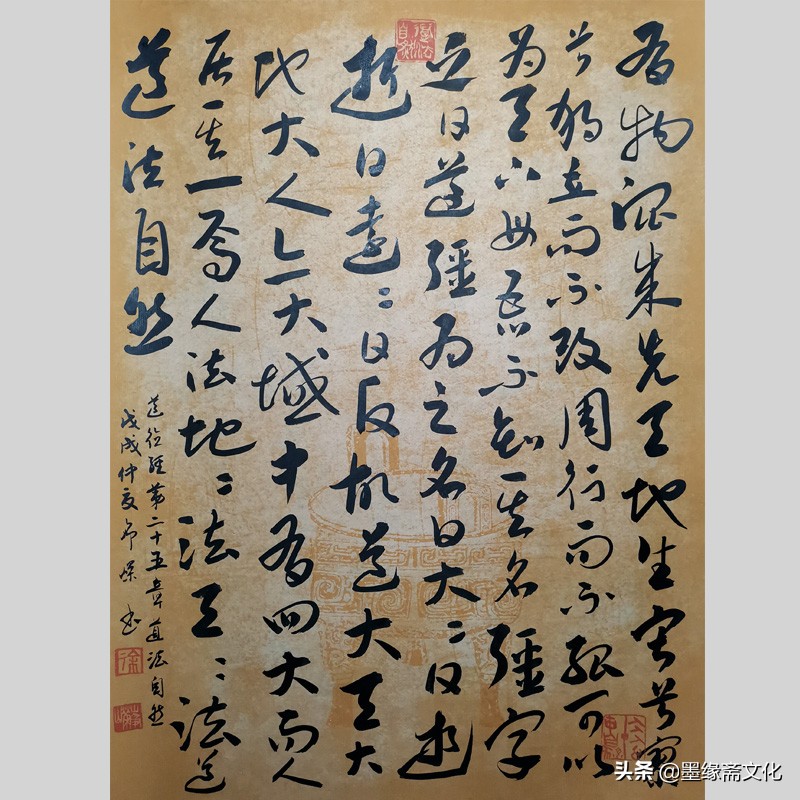 有物混成先天地生寂兮寥
兮独立而不改周行而不殆可以
为天下母吾不知其名彊字
之曰道彊为之名曰大〻曰逝
逝曰远〻曰反故道大天大
地大人亦大域中有四大而人
居其一焉人法地〻法天〻法道
道法自然
道德经第二十五章道法自然
戊戌仲夏书
徐
道法自然
头条 @墨缘斋文化